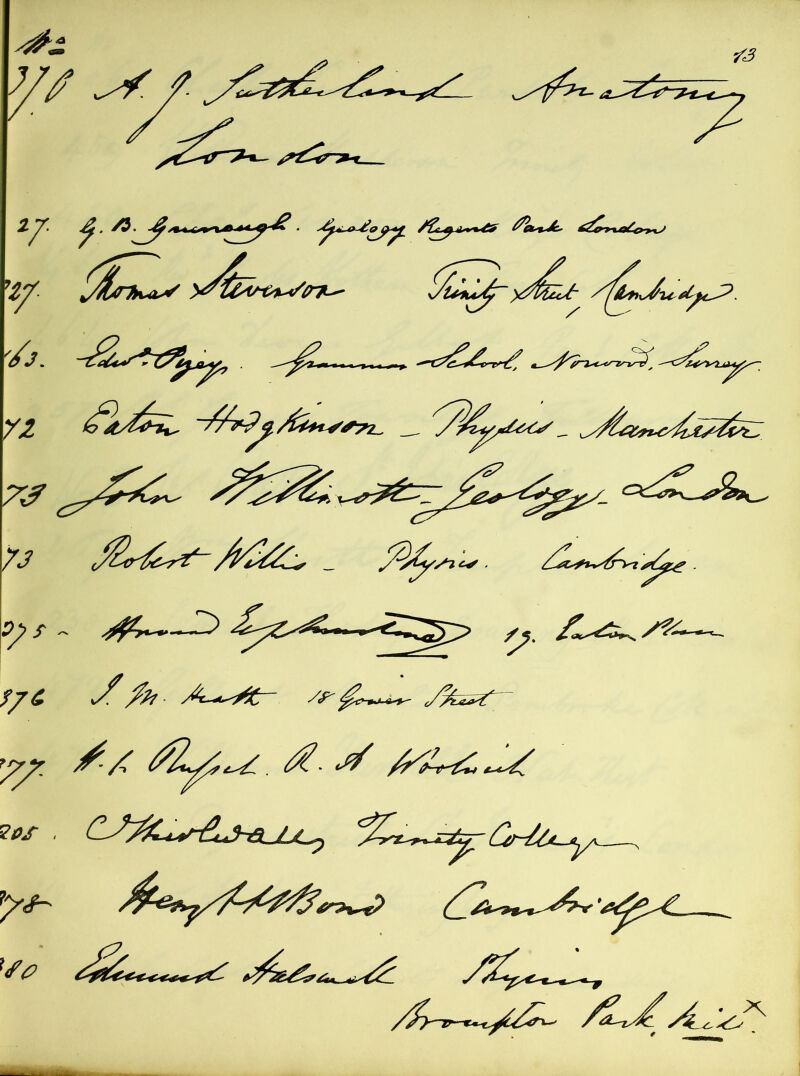 No
13
370 A. J. Sutherland Anatomy
London
27. G. B. Greenough. Geology Regents Park London
227. Thomas Stevenson Trinity Street, Cambridge.
163. Edwd. Pizey. Grammar School, Norwood, Surrey.
72 Eaton Hodgkinson – Physics – Manchester
73 John Willimott – Geology – London
73 Robert Willis – Physics. Cambridge.
375 – Howard Elphinstone 19. Eaton Place
376 J. M. Heath 18 Gower Street
377. R. A Woolwich
205. C Thirlwall, Trinity College
378 Henry Bond Cambridge
380 Edmund Halswell Physics
Brompton Park, Midx.